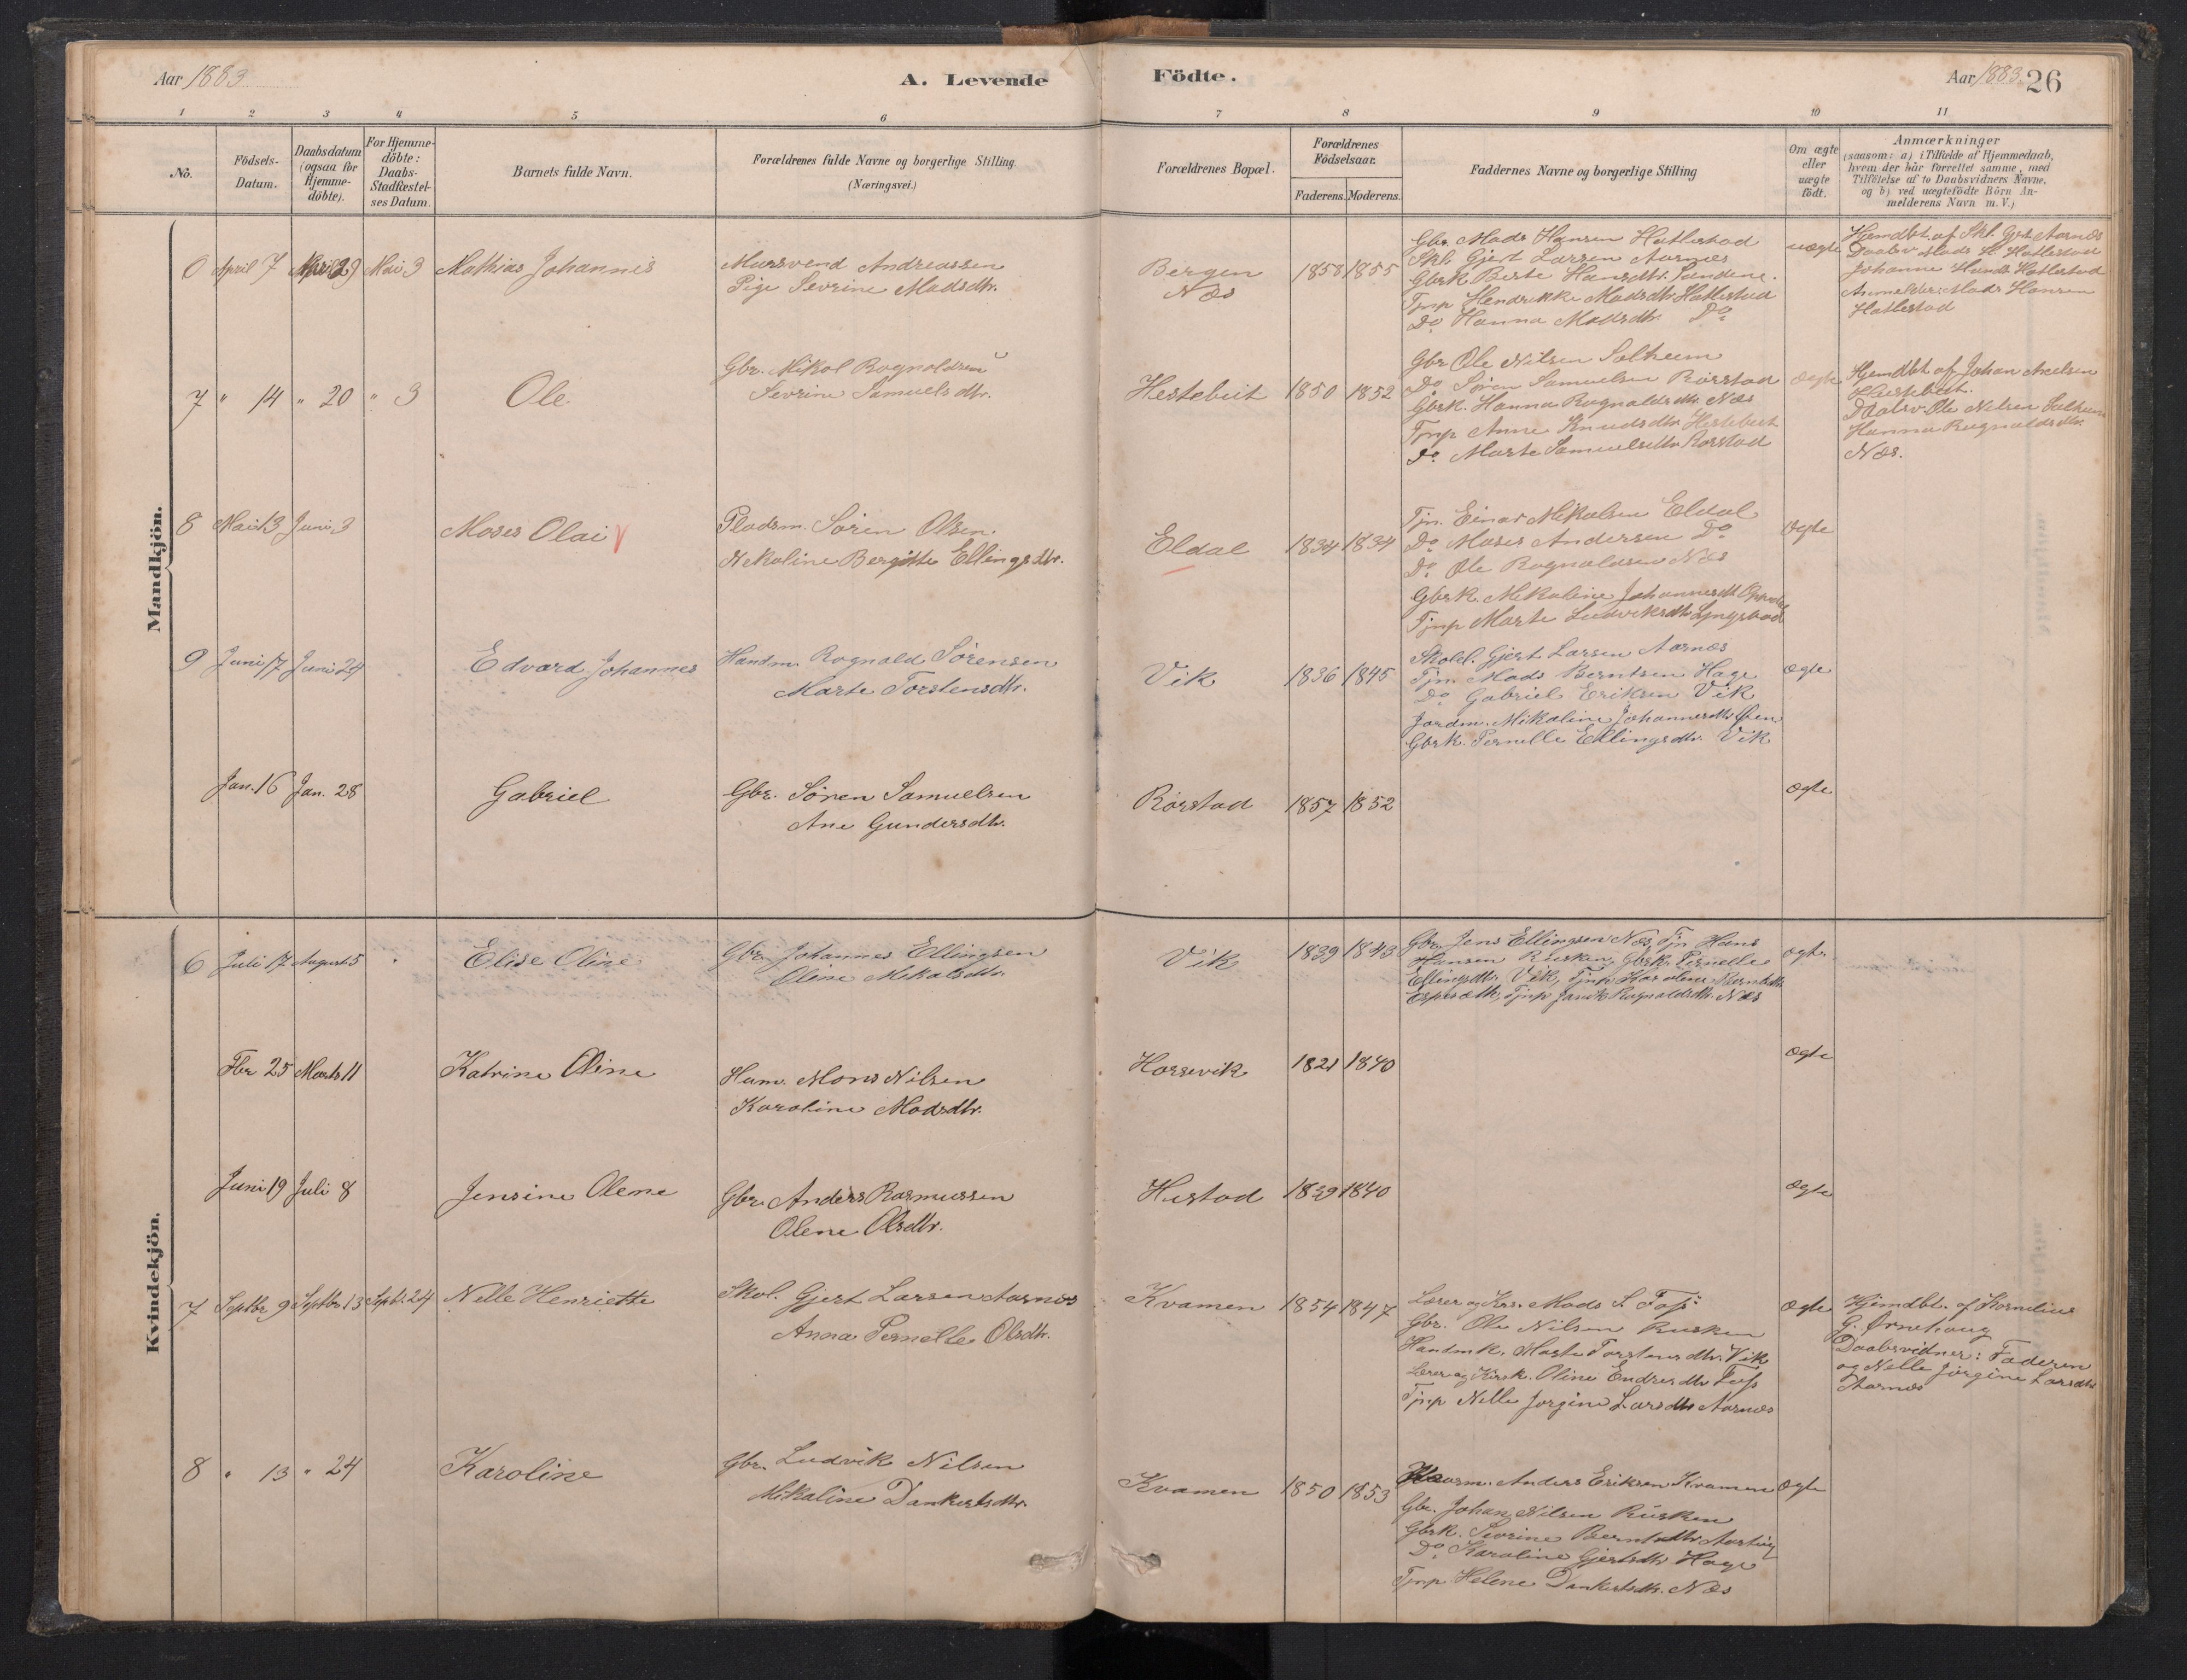 Aar 1883
A. Levende
Födte.
Aar 1883 26
1 2 3 4 5 6 7 8 9 10 11
No.
Födsels-Datum.
Daabsdatum (ogsaa for Hjemme-döbte).
For Hjemme-döbte: Daabs-Stadfæstel-ses Datum.
Barnets fulde Navn.
Forældrenes fulde Navne og borgerlige Stilling.
(Næringsvei.)
Forældrenes Bopæl.
Forældrenes Födselsaar.
Faderens. Moderens.
Faddernes Navne og borgerlige Stilling
Om ægte eller uægte födt.
Anmærkninger
(saasom: a) i Tilfælde af Hjemmedaab,
hvem der har forrettet samme, med
Tilföielse af to Daabsvidners Navne,
og b) ved uægtefödte Börn An-
melderens Navn m. V.)
Mandkjön.
6 April 7 April 29 Mai 3 Mathias Johannes
Mursvend Andreassen
Pige Sevrine Madsdtr.
Bergen
Næs
1858 1855
Gbr. Mads Hansen Hatlestad
Skl. Gjert Larsen Aarnæs
Gbrk. Berte Hansdtr. Sandene.
Tjnp Hendrikke Madsdtr. Hatlestad
Do Hanna Madsdtr. Do
uægte
Hjemdbt. af Skl. Gjert Aarnæs
Daabsv. Mads H. Hatlestad
Johanne Hatlestad
Anmelder: Mads Hansen
Hatlestad
7 " 14 " 20 " 3 Ole
Gbr. Mikal Rognaldsen
Sevrine Samuelsdtr.
Hestebeit 1850 1852
Gbr Ole Nilsen Solheim
Do Søren Samuelsen Rörstad
Gbrk. Hanna Rognaldsdtr. Næs
Tjnp Anne Knudsdtr. Hestebeit
Do Marte Samuelsdtr. Rörstad
ægte
Hjemdbt. af Johan Axelsen
Hestebeit.
Daabsv. Ole Nilsen Solheim
Hanna Rognaldsdtr.
Næs.
8 Mai 13 Juni 3 Moses Olai
Pladsm. Sören Olsen.
Nekoline Bergitte Ellingsdtr.
Eldal 1834 1834
Tjn. Einar Mikalsen Eldal
Do Moses Andersen Do
Do Ole Rognaldsen Næs
Gbrk. Mikaline Johannesdtr
Tjnp Marte Ludviksdtr Lyngstad
ægte
9 Juni 17 Juni 24 Edvard Johannes
Handm. Rognald Sörensen
Marte Torstensdtr.
Vik 1836 1845
Skolel. Gjert Larsen Aarnæs
Tjn. Mads Berntsen Hage
Do Gabriel Eriksen Vik
Jordm. Mikaline Johannesdtr Öen
Gbrk. Pernelle Ellingsdtr. Vik
ægte
Jan. 16 Jan. 28 Gabriel
Gbr. Sören Samuelsen
Ane Gundersdtr.
Rörstad 1857 1852 ægte
Kvindekjön.
6 Juli 17 August 5 Elise Oline
Gbr. Johannes Ellingsen
Oline Mikalsdtr.
Vik 1839 1843
Gbr. Jens Ellingsen Næs, Tjn Hans
Hansen Rusken, Gbrk. Pernelle
Ellingsdtr. Vik, Tjnp Karolene Berntsdtr
Espesæth, Tjnp Rognaldsdtr. Næs
ægte
Fbr 25 Marts 11 Katrine Oline
Hum. Mons Nilsen
Karoline Madsdtr.
Horsevik 1821 1840 ægte
Juni 19 Juli 8 Jensine Olene
Gbr. Anders Rasmussen
Olene Olsdtr.
Hestad 1839 1840 ægte
7 Septbr 9 Septbr 13 Septbr. 24 Nelle Henriette
Skol. Gjert Larsen Aarnæs
Anna Pernelle Olsdtr.
Kvamen 1854 1847
Lærer og Krs. Mads S. Foss
Gbr. Ole Nilsen Rusken
Handmk. Marte Torstensdtr. Vik
Lærer og Kirsk. Oline Endresdtr Foss
Tjnp Nelle Jørgine Larsdtr Aarnæs
ægte
Hjemdbt. af Kornelius
G. Ørnehaug
Daabsvidner: Faderen
og Nelle Jørgine Larsdtr
Aarnæs
8 " 13 " 24 Karoline
Gbr. Ludvik Nilsen
Mikaline Dankertsdtr.
Kvamen 1850 1853
Anders Eriksen Kvamen
Gbr. Johan Nilsen Rusken
Gbrk. Sevrine Berntsdtr
Do Karoline Gjertsdtr Hage
Tjnp Helene Dankertsdtr. Næs
ægte